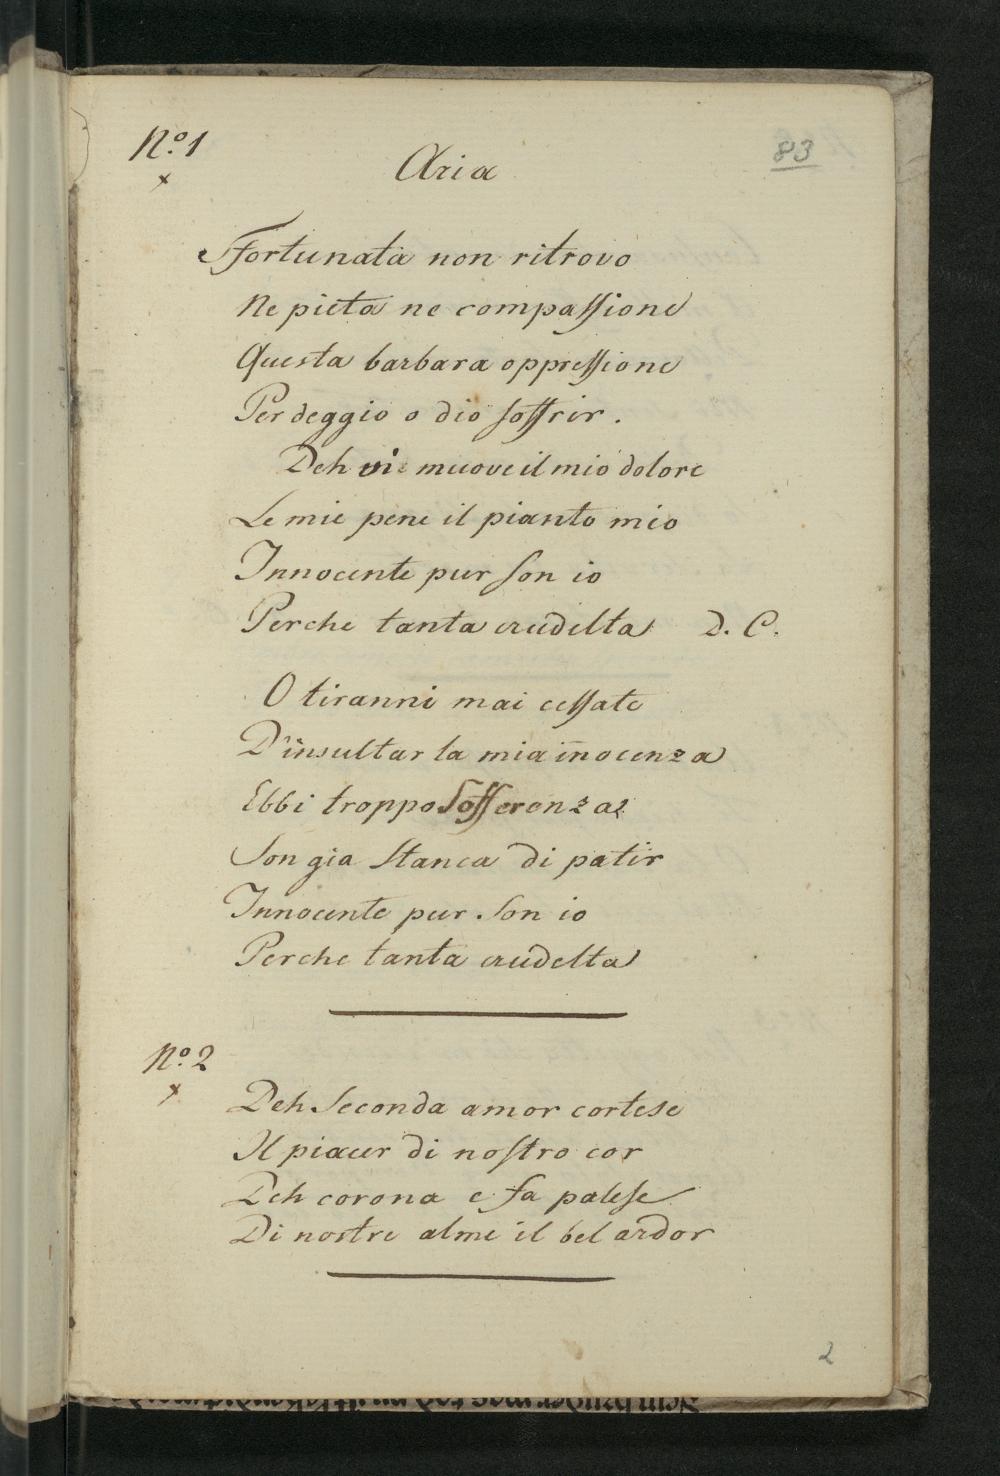 No. 1
83
Aria
Sfortunata non ritrovo
Ne pieta ne compassione
Questa barbara oppressione
Per deggio o dio soffrir.
Deh vi muove il mio dolore
Le mie pene il pianto mio
Innocente pur son io
Perche tanta crudelta D. C.
O tiranni mai cessate
D'insultar la mia innocenza
Ebbi troppo Sofferenza
Son gia stanca di patir
Innocente pur son io
Perche tanta crudelta
No. 2
Deh seconda amor cortese
Il piacer di nostro cor
Deh corona e fa palese
Di nostre alme il bel ardor
2